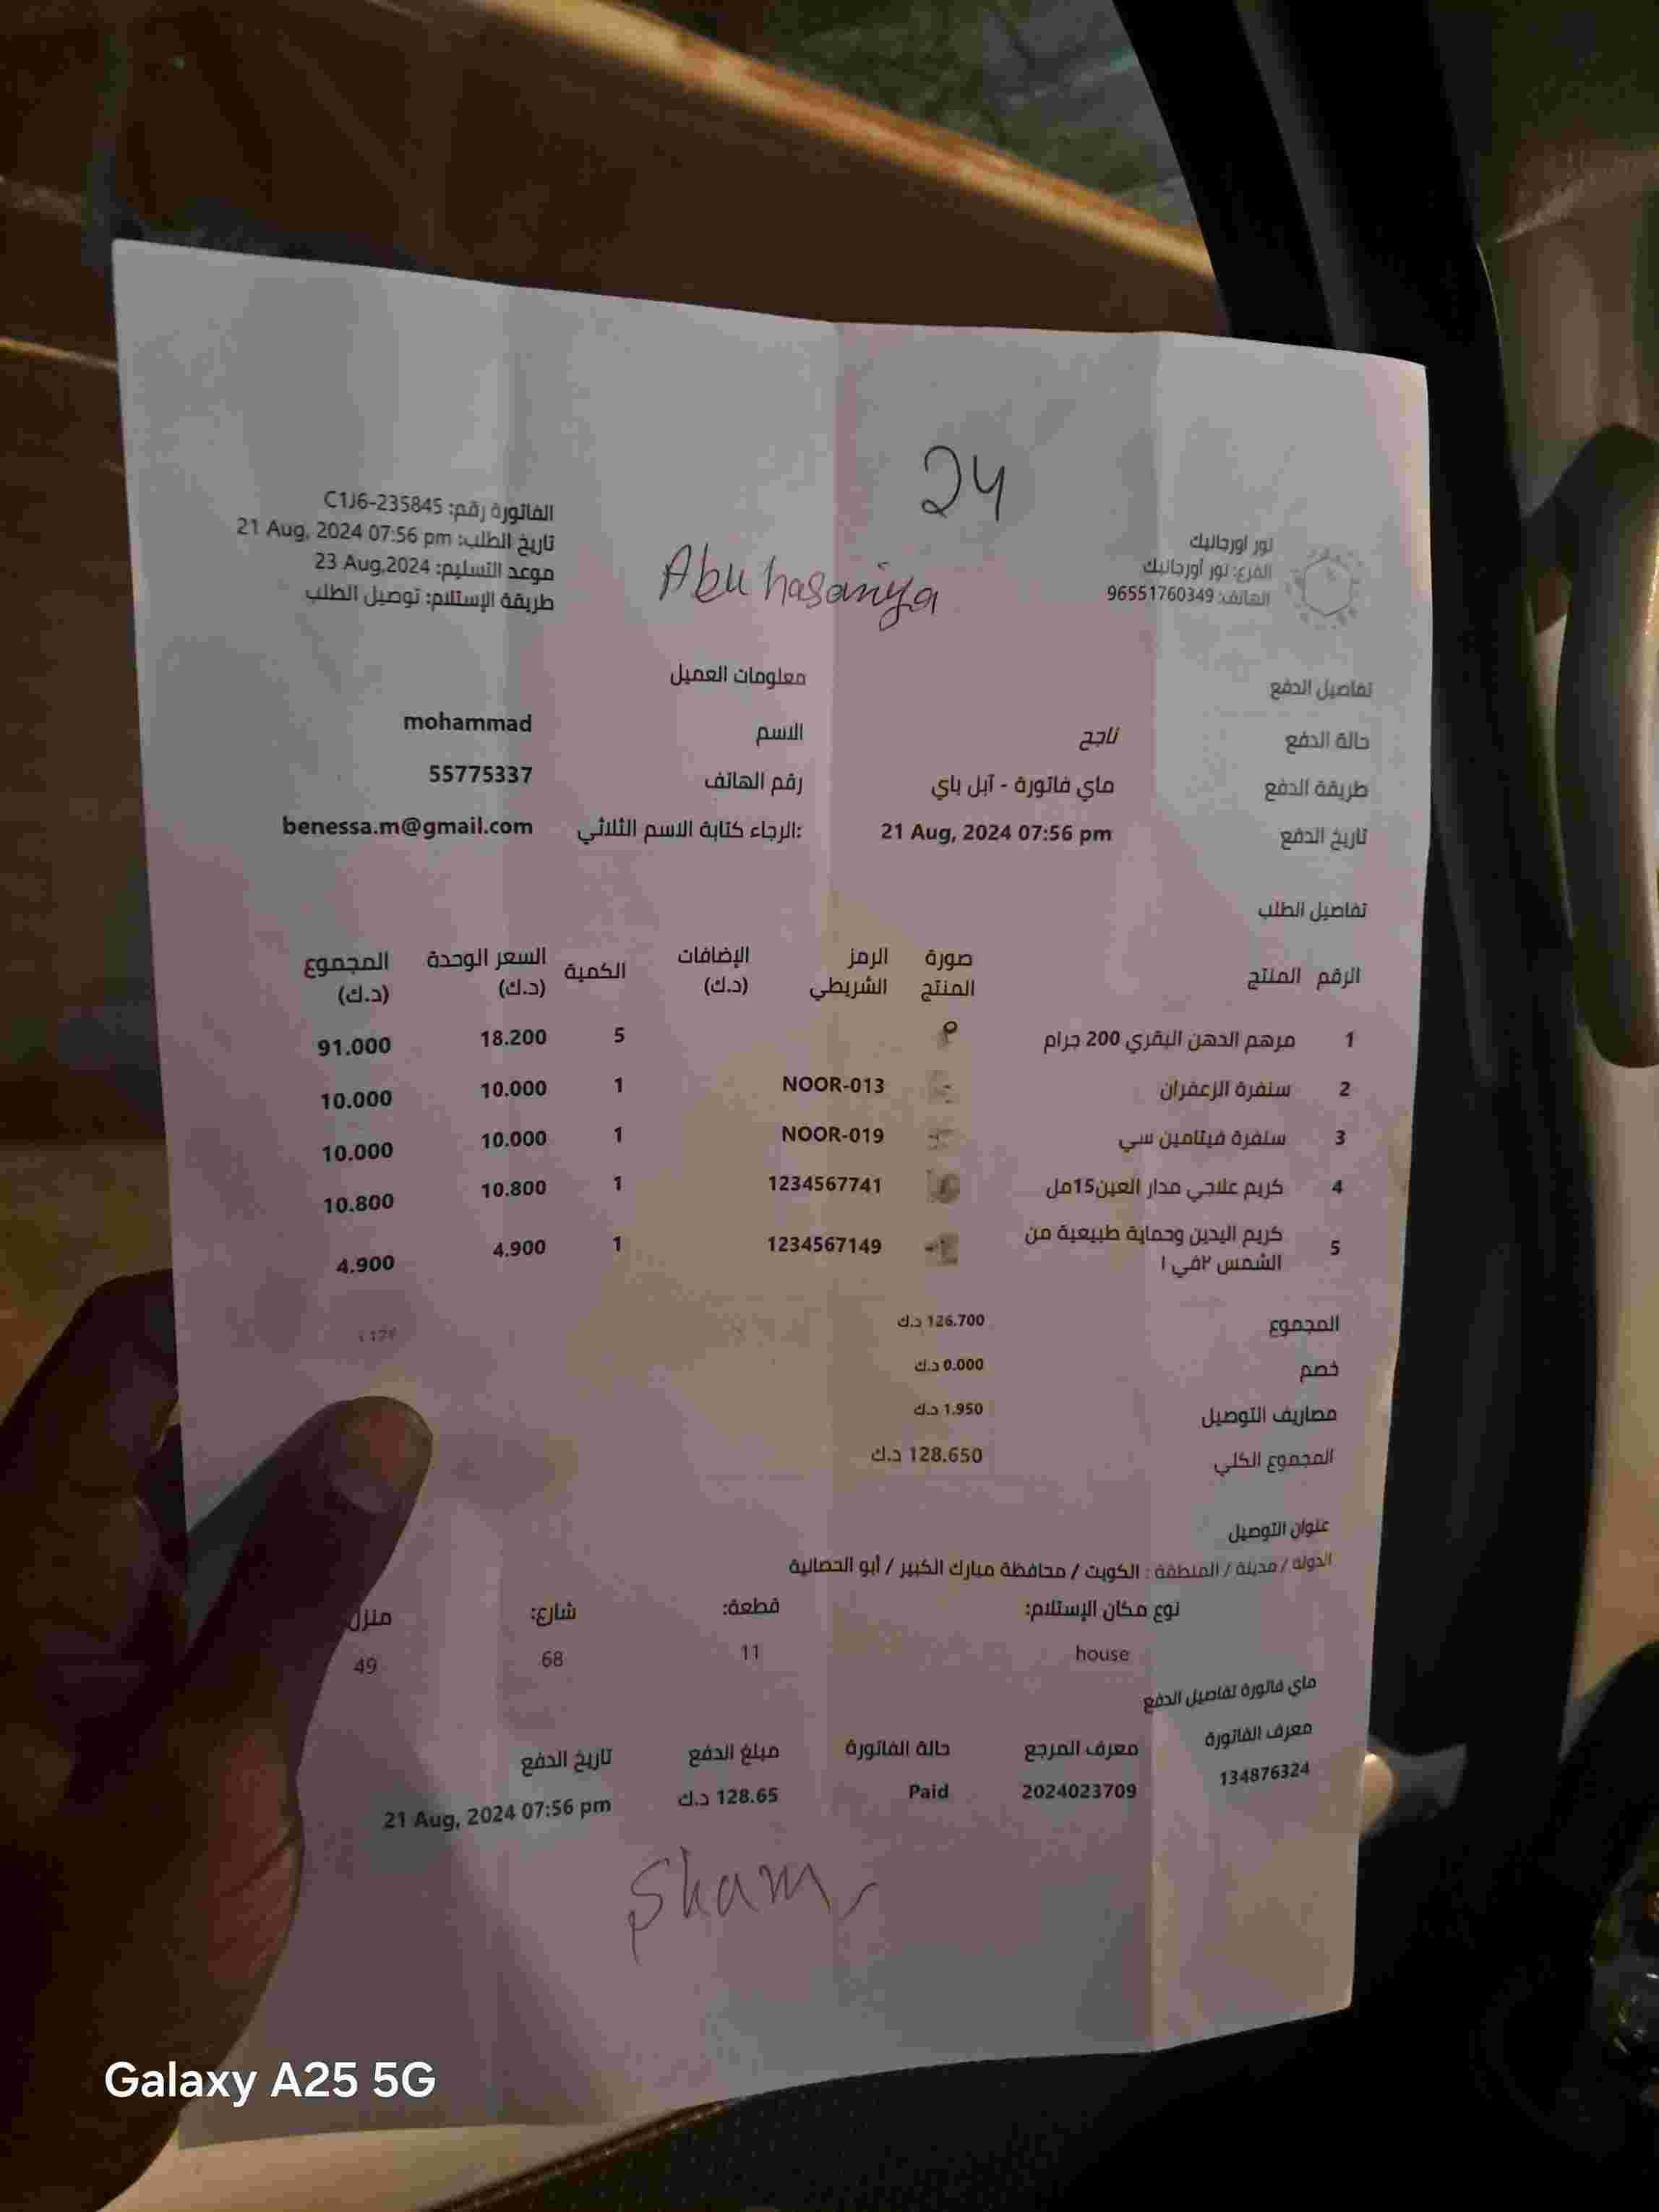 24
Abu hasaniya
نور اورجانيك
الفرع: نور أورجانيك
الهاتف: 96551760349
الفاتورة رقم: C1J6-235845
تاريخ الطلب: 21 Aug, 2024 07:56 pm
موعد التسليم: 23 Aug,2024
طريقة الإستلام: توصيل الطلب
تفاصيل الدفع
حالة الدفع ناجح
طريقة الدفع ماي فاتورة - آبل باي
تاريخ الدفع 21 Aug, 2024 07:56 pm
معلومات العميل
الاسم mohammad
رقم الهاتف 55775337
الرجاء كتابة الاسم الثلاثي: benessa.m@gmail.com
تفاصيل الطلب
الرقم المنتج صورة المنتج الرمز الشريطي الإضافات (د.ك) الكمية السعر الوحدة (د.ك) المجموع (د.ك)
1 مرهم الدهن البقري 200 جرام 5 18.200 91.000
2 سنفرة الزعفران NOOR-013 1 10.000 10.000
3 سنفرة فيتامين سي NOOR-019 1 10.000 10.000
4 كريم علاجي مدار العين15مل 1234567741 1 10.800 10.800
5 كريم اليدين وحماية طبيعية من 1234567149 1 4.900 4.900
الشمس ٢في ١
المجموع 126.700 د.ك
خصم 0.000 د.ك
مصاريف التوصيل 1.950 د.ك
المجموع الكلي 128.650 د.ك
عنوان التوصيل
الدولة / مدينة / المنطقة : الكويت / محافظة مبارك الكبير / أبو الحصانية
نوع مكان الإستلام: قطعة: شارع: منزل
house 11 68 49
ماي فاتورة تفاصيل الدفع
معرف الفاتورة معرف المرجع حالة الفاتورة مبلغ الدفع تاريخ الدفع
134876324 2024023709 Paid 128.65 د.ك 21 Aug, 2024 07:56 pm
Sham
Galaxy A25 5G